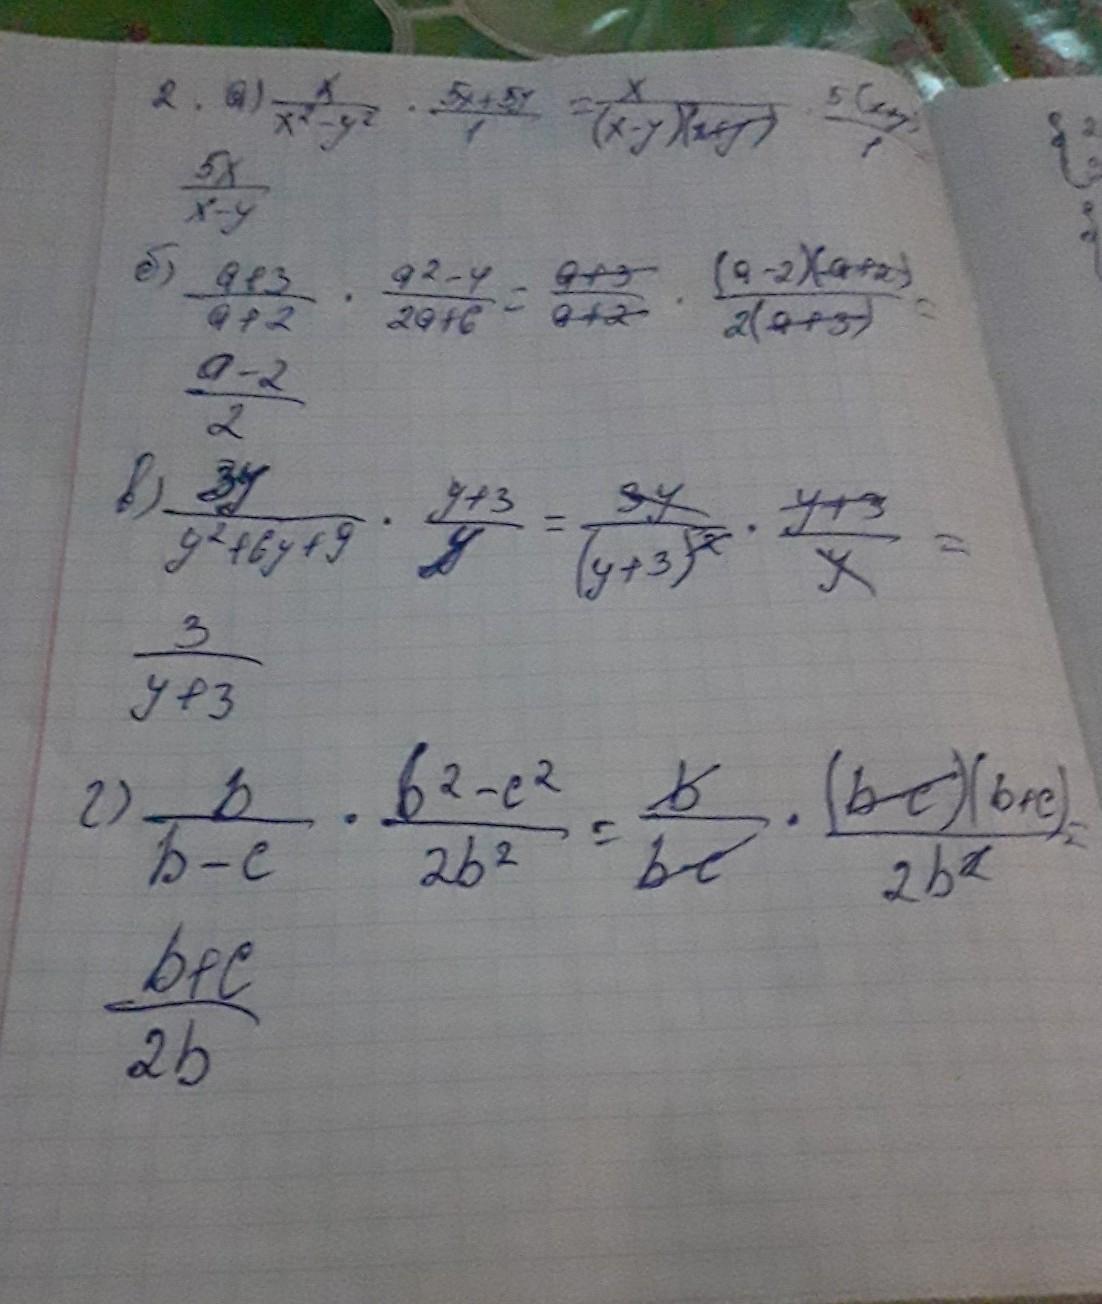 2. а) x/(x²-y²) · (5x+5y)/1 = x/((x-y)(x+y)) · 5(x+y)/1
5x/(x-y)
б) (a+3)/(a+2) · (a²-4)/(2a+6) = (a+3)/(a+2) · (a-2)(a+2)/(2(a+3)) =
(a-2)/2
в) 3y/(y²+6y+9) · (y+3)/y = 3y/(y+3)² · (y+3)/y =
3/(y+3)
г) b/(b-c) · (b²-c²)/(2b²) = b/(b-c) · (b-c)(b+c)/(2b²) =
(b+c)/(2b)